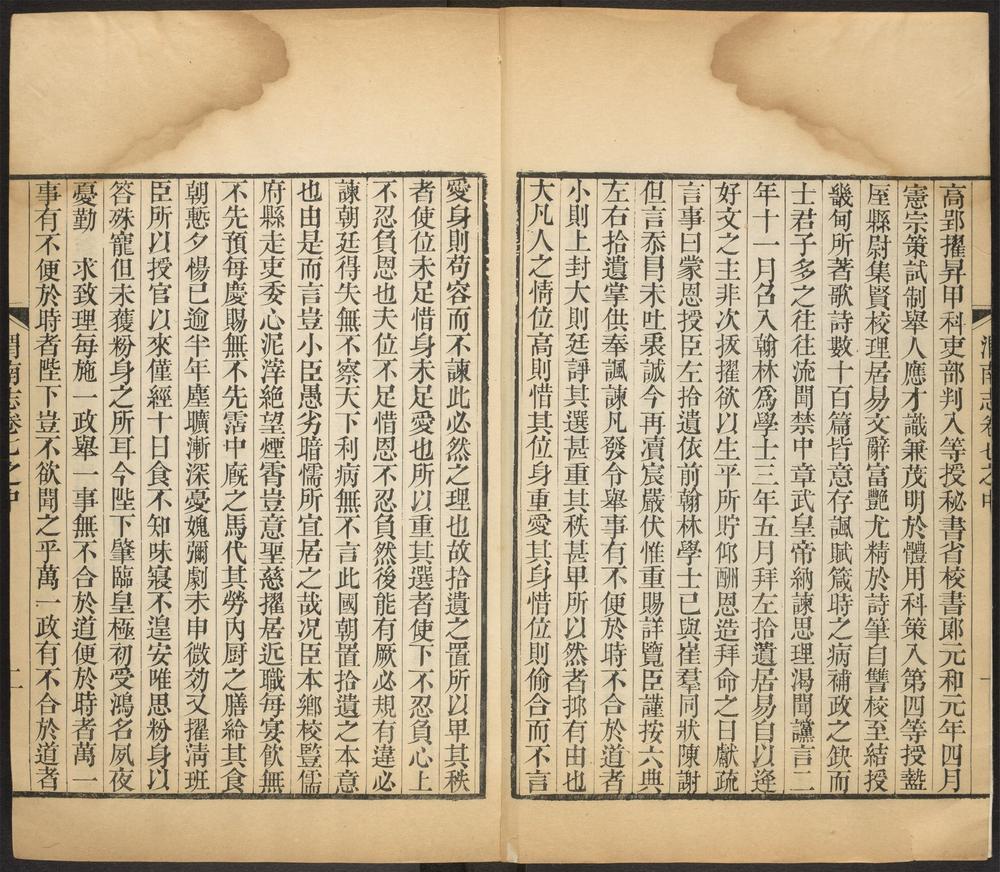 高郢擢昇甲科吏部判入等授秘書省校書郎元和元年四月
憲宗策試制舉人應才識兼茂明於體用科策入第四等授盩
厔縣尉集賢校理居易文辭富艷尤精於詩筆自讐校至結授
畿甸所著歌詩數十百篇皆意存諷賦箴時之病補政之缺而
士君子多之往往流聞禁中章武皇帝納諫思理渴聞讜言二
年十一月召入翰林爲學士三年五月拜左拾遺居易自以逢
好文之主非次拔擢欲以生平所貯仰酬恩造拜命之日獻疏
言事曰蒙恩授臣左拾遺依前翰林學士已與崔羣同狀陳謝
但言忝冐未吐衷誠今再瀆宸嚴伏惟重賜詳覽臣謹按六典
左右拾遺掌供奉諷諫凡發令舉事有不便於時不合於道者
小則上封大則廷諍其選甚重其秩甚卑所以然者抑有由也
大凡人之情位高則惜其位身重愛其身惜位則偷合而不言
渭南志卷七之中
愛身則苟容而不諫此必然之理也故拾遺之置所以卑其秩
者使位未足惜身未足愛也所以重其選者使下不忍負心上
不忍負恩也夫位不足惜恩不忍負然後能有厥必規有違必
諫朝廷得失無不察天下利病無不言此國朝置拾遺之本意
也由是而言豈小臣愚劣暗懦所宜居之哉况臣本鄉校豎儒
府縣走吏委心泥滓絶望煙霄豈意聖慈擢居近職每宴飲無
不先預每慶賜無不先霑中廐之馬代其勞內厨之膳給其食
朝慙夕惕已逾半年塵曠漸深憂媿彌劇未申微効又擢淸班
臣所以授官以來僅經十日食不知味寢不遑安唯思粉身以
答殊寵但未獲粉身之所耳今陛下肇臨皇極初受鴻名夙夜
憂勤 求致理每施一政舉一事無不合於道便於時者萬一
事有不便於時者陛下豈不欲聞之乎萬一政有不合於道者
渭南志卷七之中 二